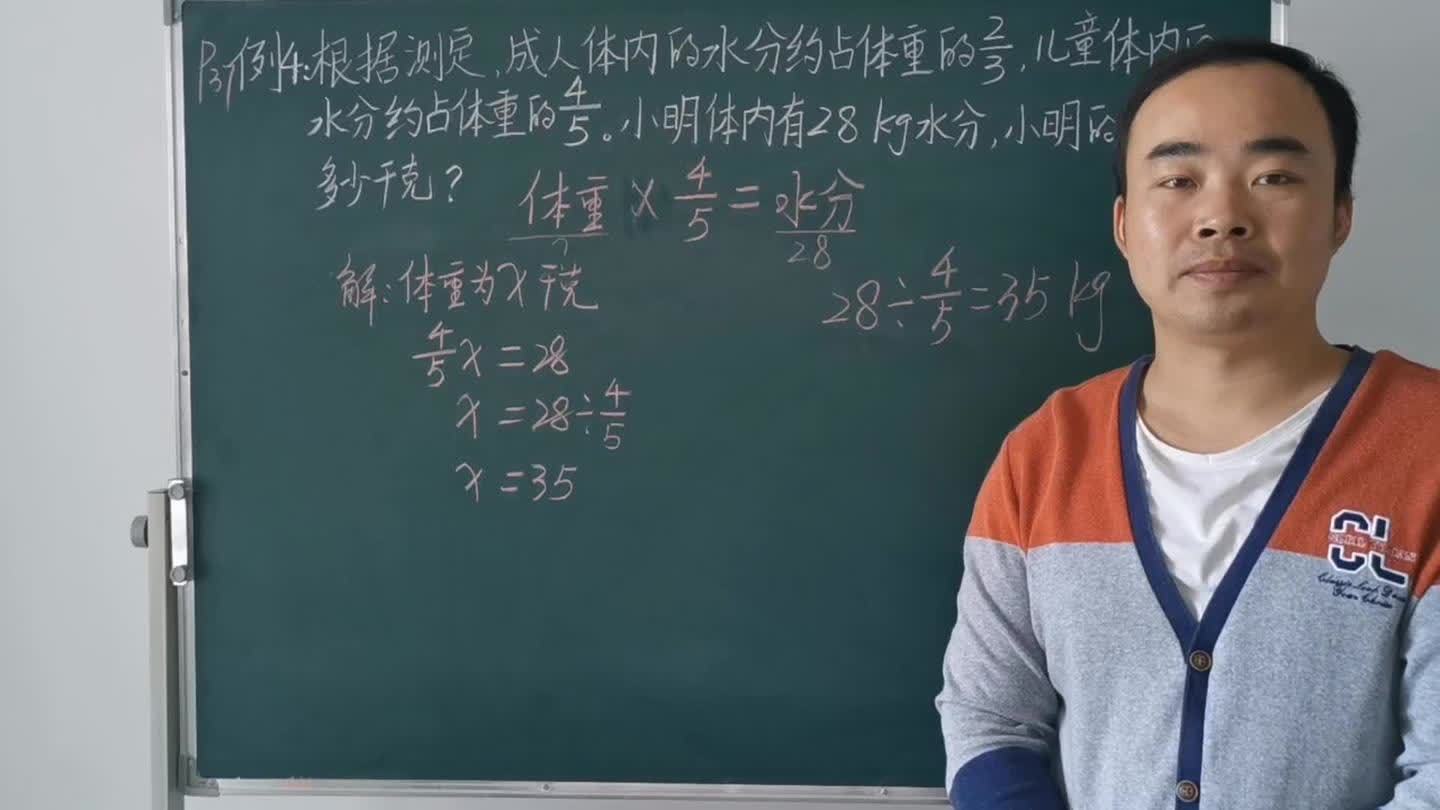 P37例4:根据测定,成人体内的水分约占体重的2/3,儿童体内
水分约占体重的4/5。小明体内有28kg水分,小明的
多少千克?
体重×4/5=水分
? 28
解:体重为x千克
4/5x=28
x=28÷4/5
x=35
28÷4/5=35kg
CL